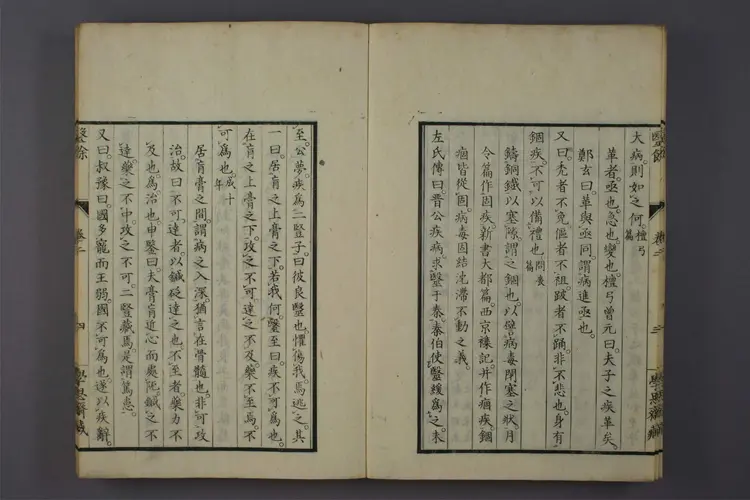 大病則如之何檀弓篇
革者亟也急也變也檀弓曾元曰夫子之疾革矣
鄭玄曰革與亟同謂病進亟也
又曰禿者不免傴者不袒跛者不踊非不悲也身有
錮疾不可以備禮也問喪篇
鑄銅鐵以塞隙謂之錮也以
病毒閉塞之狀月
令篇作固疾新書大都篇西京襍記并作痼疾錮
痼皆從固病毒固結沈滯不動之義
左氏傳曰晉公疾病求毉于秦秦伯使毉緩爲之未
至公夢疾爲二豎子曰彼良毉也懼傷我焉逃之其
一曰居肓之上膏之下若我何毉至曰疾不可爲也
在肓之上膏之下攻之不可達之不及藥不至焉不
可爲也成十年
居肓膏之間謂病之入深猶言在骨髓也非可攻
治故曰不可達者以鍼砭達之也不至者藥力不
及也爲治也申鑒曰夫膏肓近心而處阨鍼之不
逹藥之不中攻之不可二豎藏焉是謂篤患
又曰叔豫曰國多寵而王弱國不可爲也遂以疾辭
毉餘
卷二
四
學思齋藏